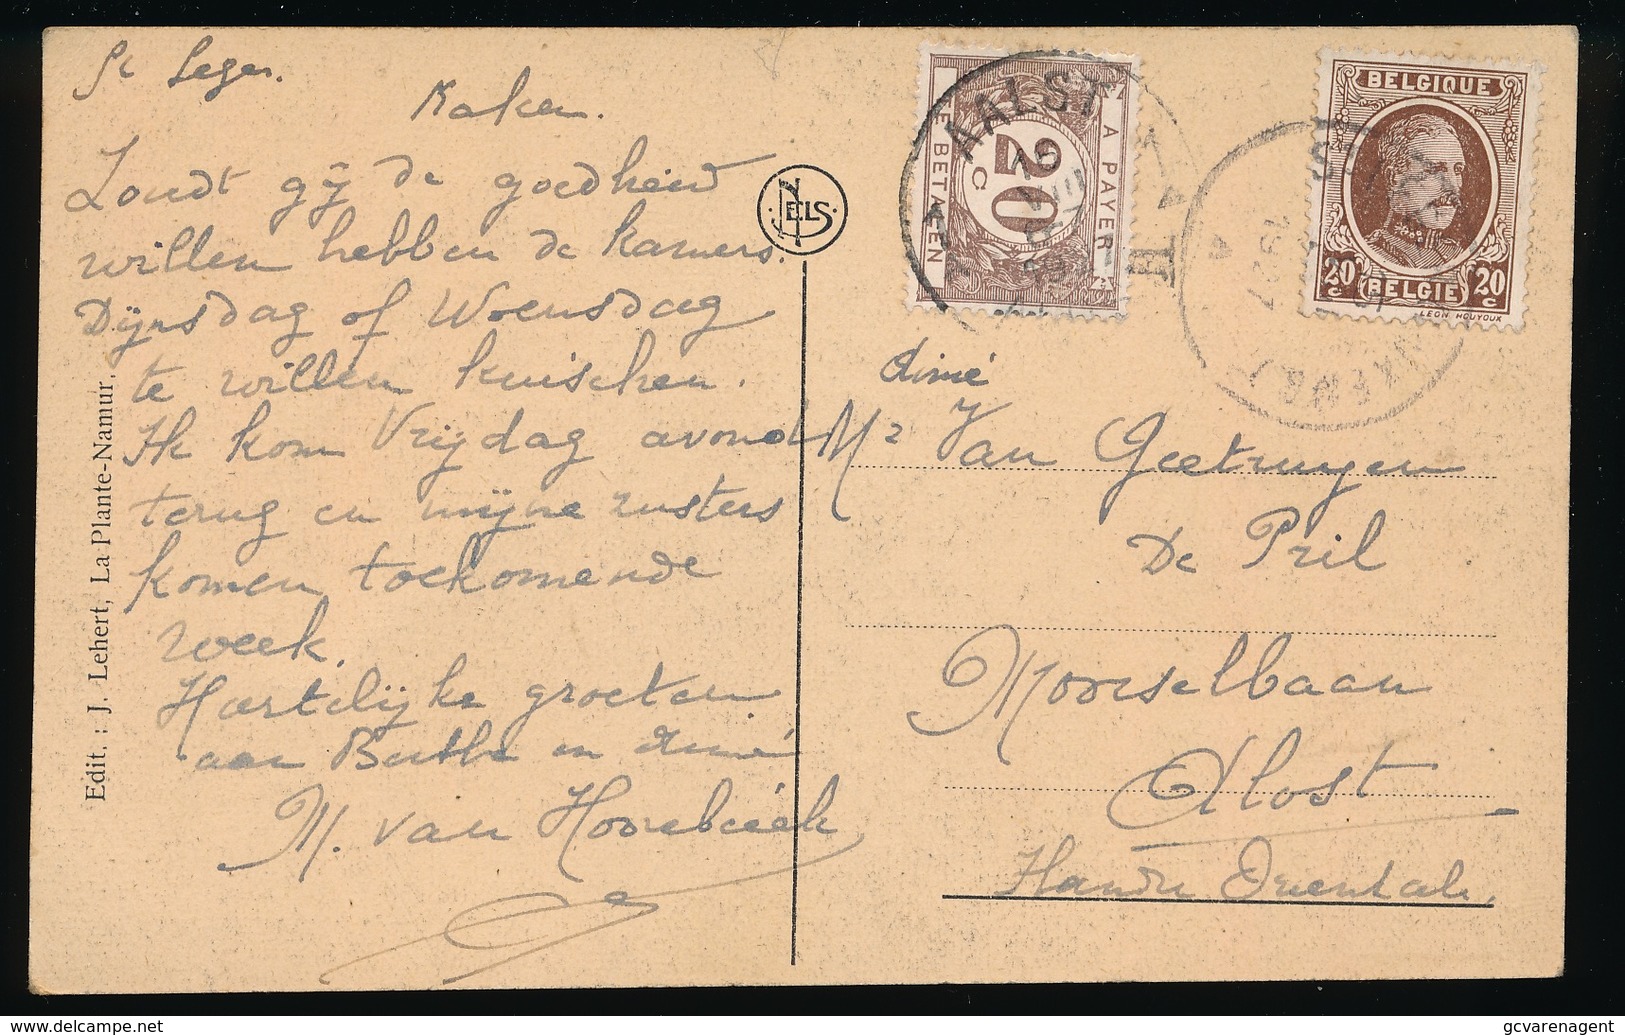 St Leger.
Maken.
Zoudt gij de goedheid
willen hebben de kamers.
Dijnsdag of Woensdag
te willen kuischen.
Ik kom Vrijdag avond
terug en mijne zusters
komen toekomende
week.
Hartelijke groeten
aan Berthe en Aimé
M. van Hoorebeeck
Edit. : J. Lehert, La Plante-Namur.
NELS
A PAYER
TE BETALEN
20
C
AALST
T
BELGIQUE
20 C
BELGIE
20 C
LEON HOUYOUX
1927
Aimé
Mr Van Geetruyen
De Pril
Moorselbaan
Alost
Flandre Orientale.
delcampe.net
gcvarenagent